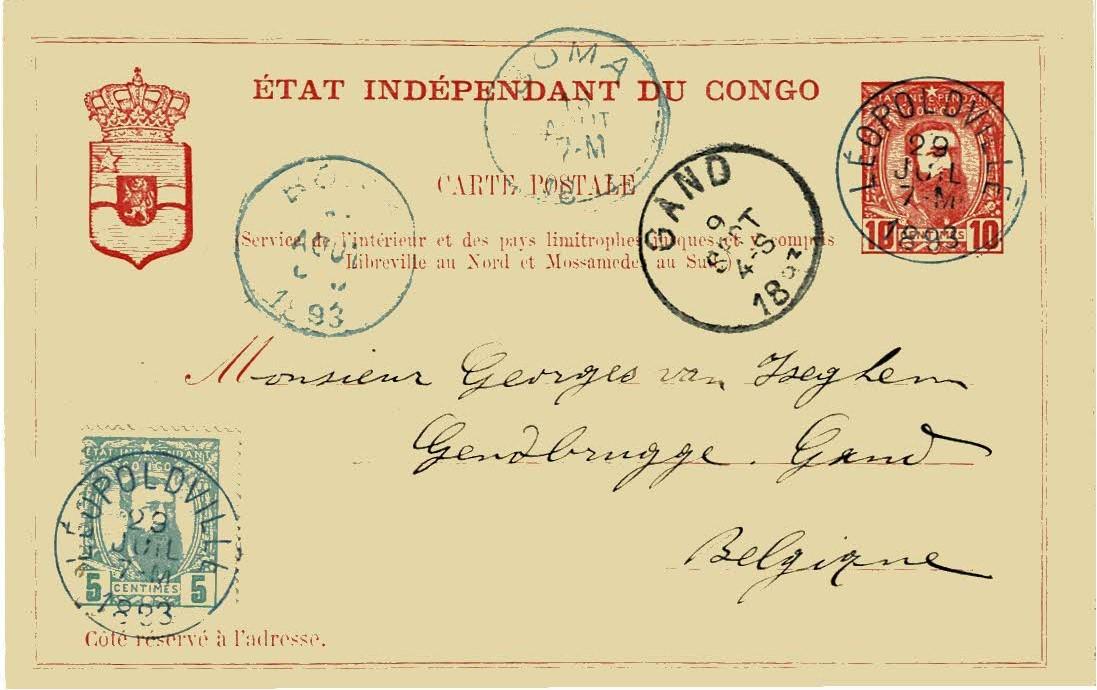 ÉTAT INDÉPENDANT DU CONGO
CARTE POSTALE
(Service de l'intérieur et des pays limitrophes jusques et y compris
Libreville au Nord et Mossamedes au Sud)
BOMA
AOUT
7-M
LÉOPOLDVILLE
29
JUIL
7-M
1893
ÉTAT INDÉPENDANT
CONGO
10 CENTIMES 10
AOUT
1893
GAND
9
SEPT
4-S
1893
Monsieur Georges van Iseghem
Gendbrugge. Gand
Belgique
ÉTAT INDÉPENDANT
CONGO
LÉOPOLDVILLE
29
JUIL
7-M
1893
5 CENTIMES 5
Côté réservé à l'adresse.